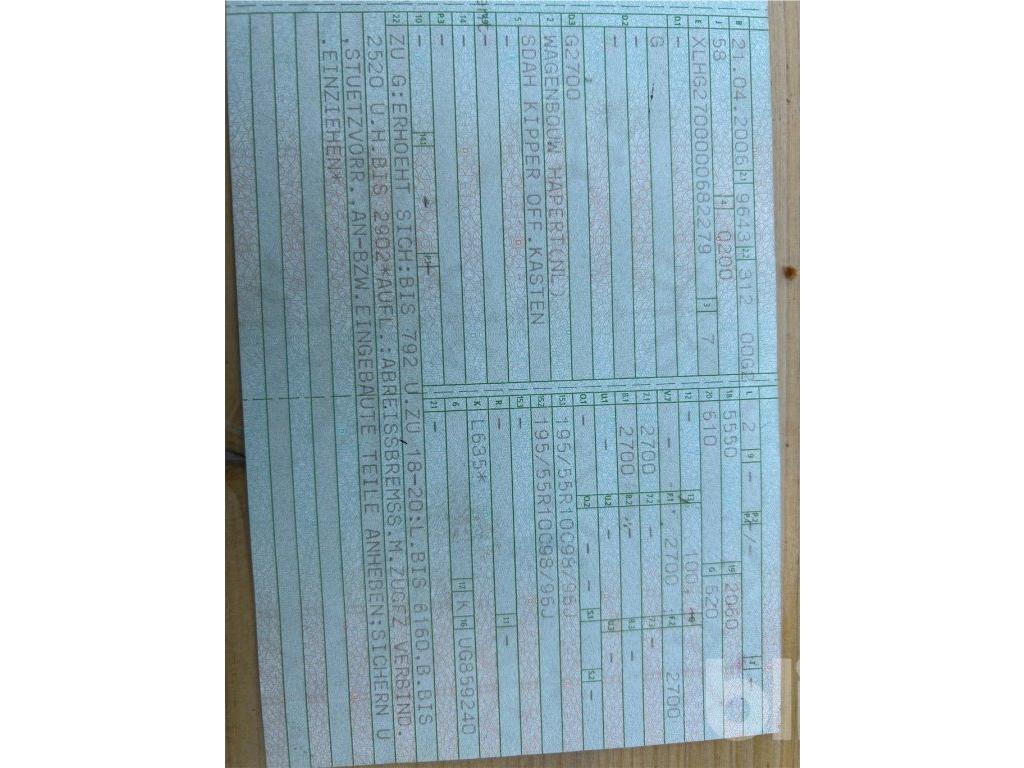 B 21.04.2006 2.1 9643 2.2 312 00G2
J 58 4 0200
E XLHG2700000682279 3 7
D.1 -
G
D.2 -
-
-
D.3 G2700
2 WAGENBOUW HAPERT(NL)
5 SDAH KIPPER OFF.KASTEN
-
V.9 -
14 -
P.3 -
10 - 14.1 P.1 -
L 2 9 - P.2 P.4 -/- T -
18 5550 19 2060
20 610 G 520
12 - 13 100, Q
V.7 - F.1 2700 F.2 2700
7.1 2700 7.2 - 7.3 -
8.1 2700 8.2 - 8.3 -
U.1 - U.2 - U.3 -
O.1 - O.2 - S.1 - S.2 -
15.1 195/55R10C98/96J
15.2 195/55R10C98/96J
15.3 -
R - 11 -
K L635*
6 - 17 K 16 UG859240
21 -
22 ZU G:ERHOEHT SICH:BIS 792 U.ZU 18-20:L.BIS 6160.B.BIS
2520 U.H.BIS 2902*AUFL.:ABREISSBREMSS.M.ZUGFZ VERBIND.
,STUETZVORR.,AN-BZW.EINGEBAUTE TEILE ANHEBEN:SICHERN U
.EINZIEHEN*